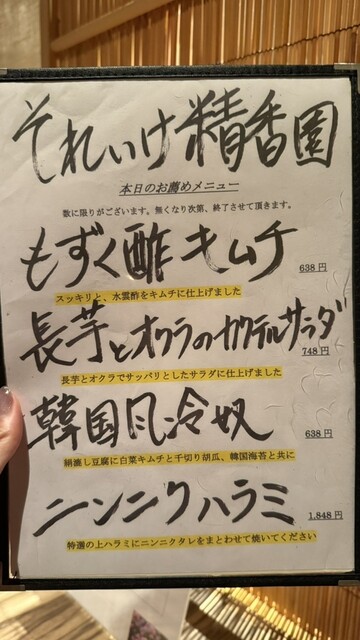 それいけ精香園
本日のお薦めメニュー
数に限りがございます。無くなり次第、終了させて頂きます。
もずく酢キムチ
638 円
スッキリと、水雲酢をキムチに仕上げました
長芋とオクラのカクテルサラダ
748 円
長芋とオクラでサッパリとしたサラダに仕上げました
韓国風冷奴
638 円
絹漉し豆腐に白菜キムチと千切り胡瓜、韓国海苔と共に
ニンニクハラミ
1,848 円
特選の上ハラミにニンニクタレをまとわせて焼いてください